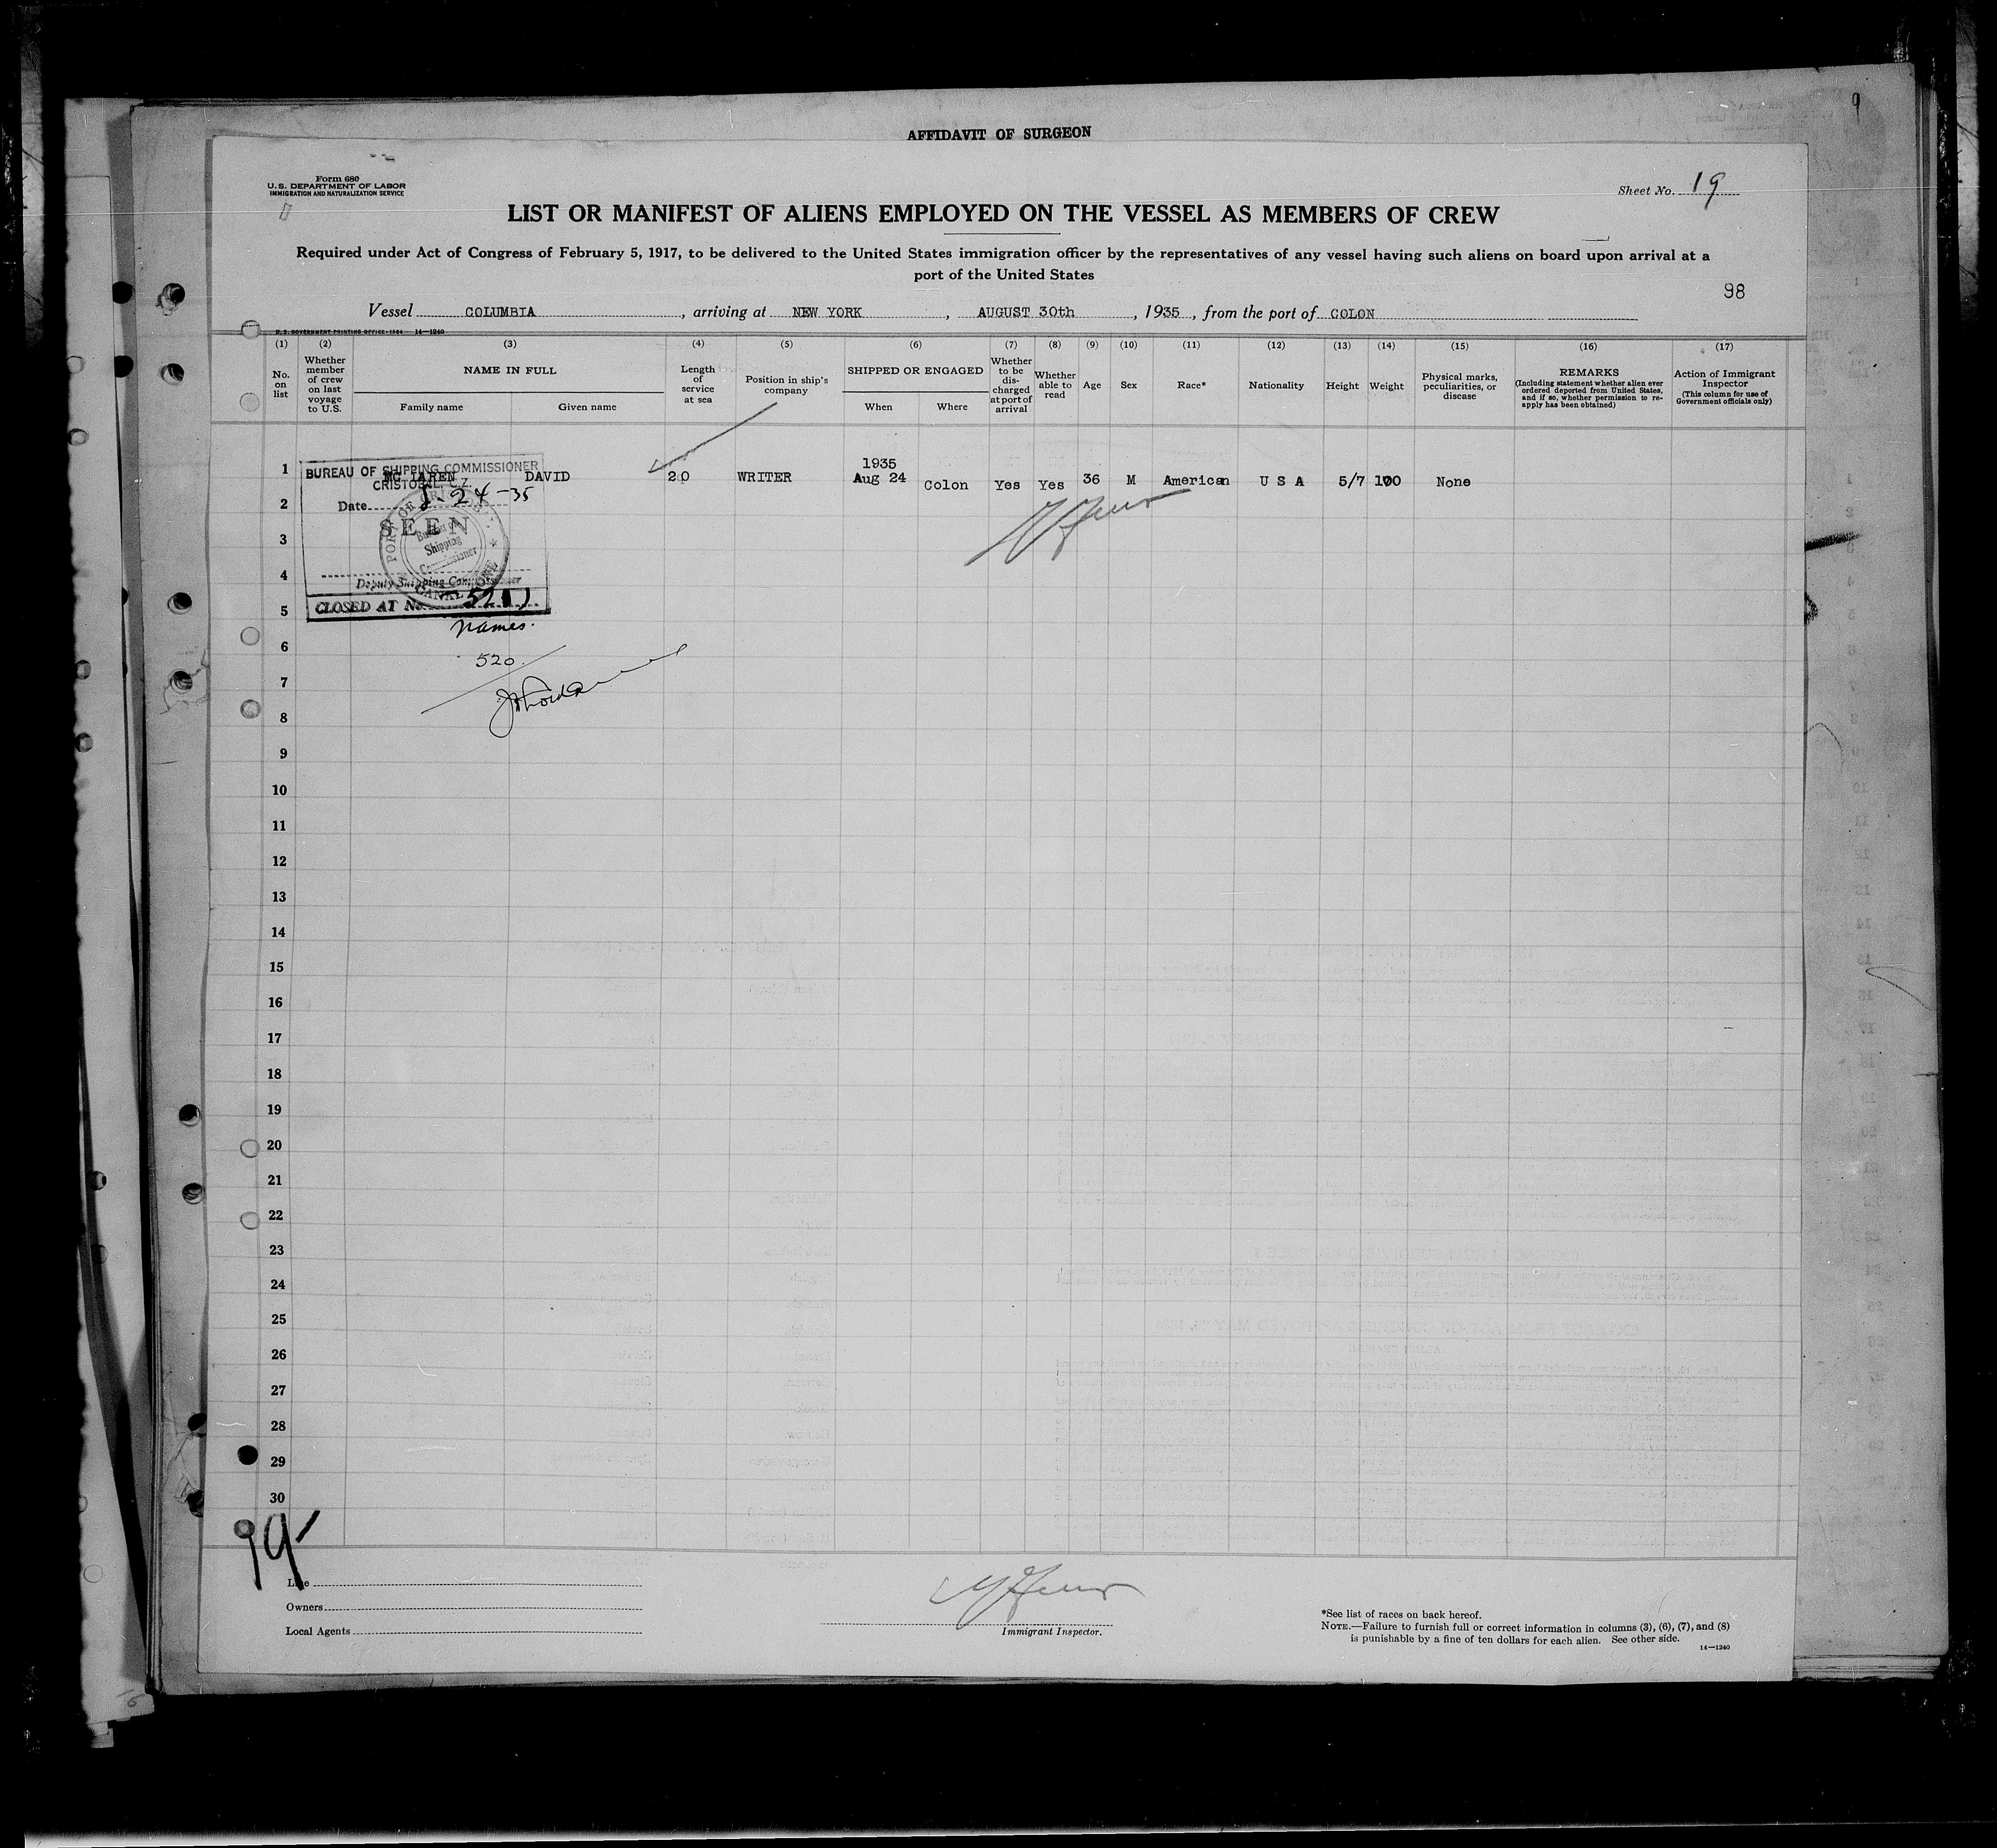 9
AFFIDAVIT OF SURGEON
Form 680
U.S. DEPARTMENT OF LABOR
IMMIGRATION AND NATURALIZATION SERVICE
Sheet No. 19
LIST OR MANIFEST OF ALIENS EMPLOYED ON THE VESSEL AS MEMBERS OF CREW
Required under Act of Congress of February 5, 1917, to be delivered to the United States immigration officer by the representatives of any vessel having such aliens on board upon arrival at a
port of the United States
98
Vessel COLUMBIA, arriving at NEW YORK, AUGUST 30th, 1935, from the port of COLON
U.S. GOVERNMENT PRINTING OFFICE: 1934 14—1240
(1) (2) (3) (4) (5) (6) (7) (8) (9) (10) (11) (12) (13) (14) (15) (16) (17)
No. on list
Whether member of crew on last voyage to U.S.
NAME IN FULL
Family name Given name
Length of service at sea
Position in ship's company
SHIPPED OR ENGAGED
When Where
Whether to be discharged at port of arrival
Whether able to read
Age
Sex
Race*
Nationality
Height
Weight
Physical marks, peculiarities, or disease
REMARKS
(Including statement whether alien ever ordered deported from United States, and if so, whether permission to re-apply has been obtained)
Action of Immigrant Inspector
(This column for use of Government officials only)
1 MC LAREN DAVID 20 WRITER 1935 Aug 24 Colon Yes Yes 36 M American U S A 5/7 None
BUREAU OF SHIPPING COMMISSIONER
CRISTOBAL, C.Z.
Date 8-24-35
SEEN
PORT OF CRISTOBAL
Bureau of
Shipping
Commissioner
CANAL ZONE
Deputy Shipping Commissioner
CLOSED AT No. 521
names.
520
2
3
4
5
6
7
8
9
10
11
12
13
14
15
16
17
18
19
20
21
22
23
24
25
26
27
28
29
30
Line
Owners
Local Agents
Immigrant Inspector.
*See list of races on back hereof.
NOTE.—Failure to furnish full or correct information in columns (3), (6), (7), and (8)
is punishable by a fine of ten dollars for each alien. See other side.
14—1240